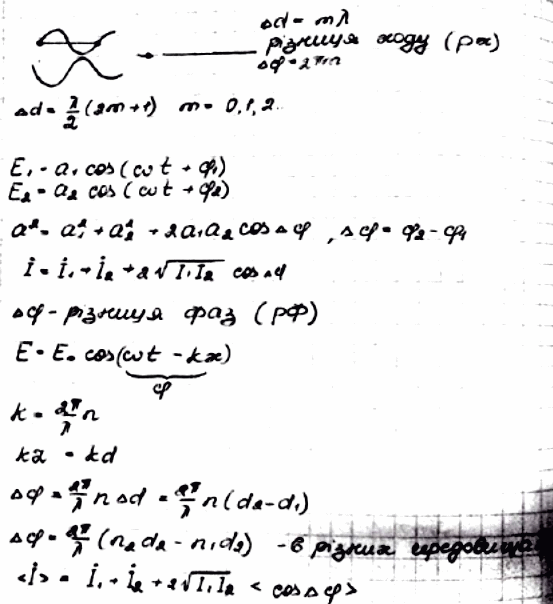 Δd = mλ
різниця ходу (рх)
Δφ = 2πm
Δd = λ/2 (2m+1) m = 0,1,2..
E₁ = a₁ cos(ωt + φ₁)
E₂ = a₂ cos(ωt + φ₂)
a² = a₁² + a₂² + 2a₁a₂ cos Δφ , Δφ = φ₂ - φ₁
I = I₁ + I₂ + 2√I₁I₂ cos Δφ
Δφ - різниця фаз (рФ)
E = E₀ cos(ωt - kx)
φ
k = 2π/λ n
kx = kd
Δφ = 2π/λ n Δd = 2π/λ n (d₂-d₁)
Δφ = 2π/λ (n₂d₂ - n₁d₁) - в різних середовищах
<I> = I₁ + I₂ + 2√I₁I₂ <cos Δφ>